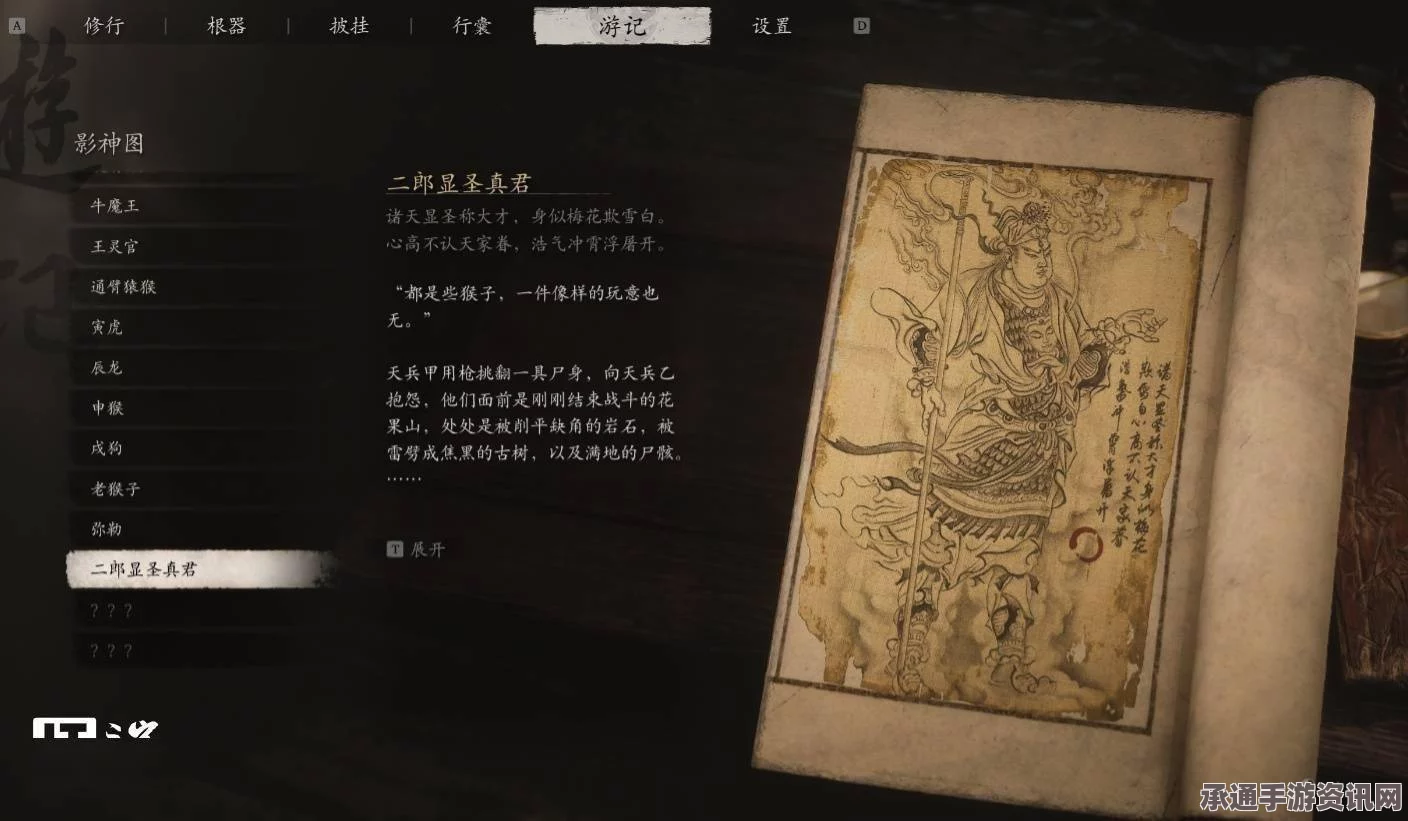 A 修行 | 根器 | 披挂 | 行囊 游记 设置 D
影神图
牛魔王
王灵官
通臂猿猴
寅虎
辰龙
申猴
戌狗
老猴子
弥勒
二郎显圣真君
？？？
？？？
二郎显圣真君
诸天显圣称大才，身似梅花欺雪白。
心高不认天家眷，浩气冲霄浮屠开。
“都是些猴子，一件像样的玩意也
无。”
天兵甲用枪挑翻一具尸身，向天兵乙
抱怨，他们面前是刚刚结束战斗的花
果山，处处是被削平缺角的岩石，被
雷劈成焦黑的古树，以及满地的尸骸。
……
T 展开
诸天显圣称大才身似梅花
欺雪白心高不认天家眷
浩气冲霄浮屠开
承通手游资讯网